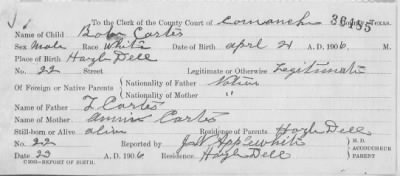 To the Clerk of the County Court of Comanche County, Texas. 36485
Name of Child Carter
Sex Male Race White Date of Birth April 21 A. D. 1906, M.
Place of Birth Hazle Dell
No. 22 Street Legitimate or Otherwise Legitimate
Of Foreign or Native Parents Nationality of Father Native
Nationality of Mother "
Name of Father L Carter
Name of Mother Annie Carter
Still-born or Alive alive Residence of Parents Hazle Dell
No. 22 Reported by J. W. Applewhite M. D.
ACCOUCHEUR
Date 23 A. D. 1906 Residence Hazle Dell PARENT
C203—REPORT OF BIRTH.